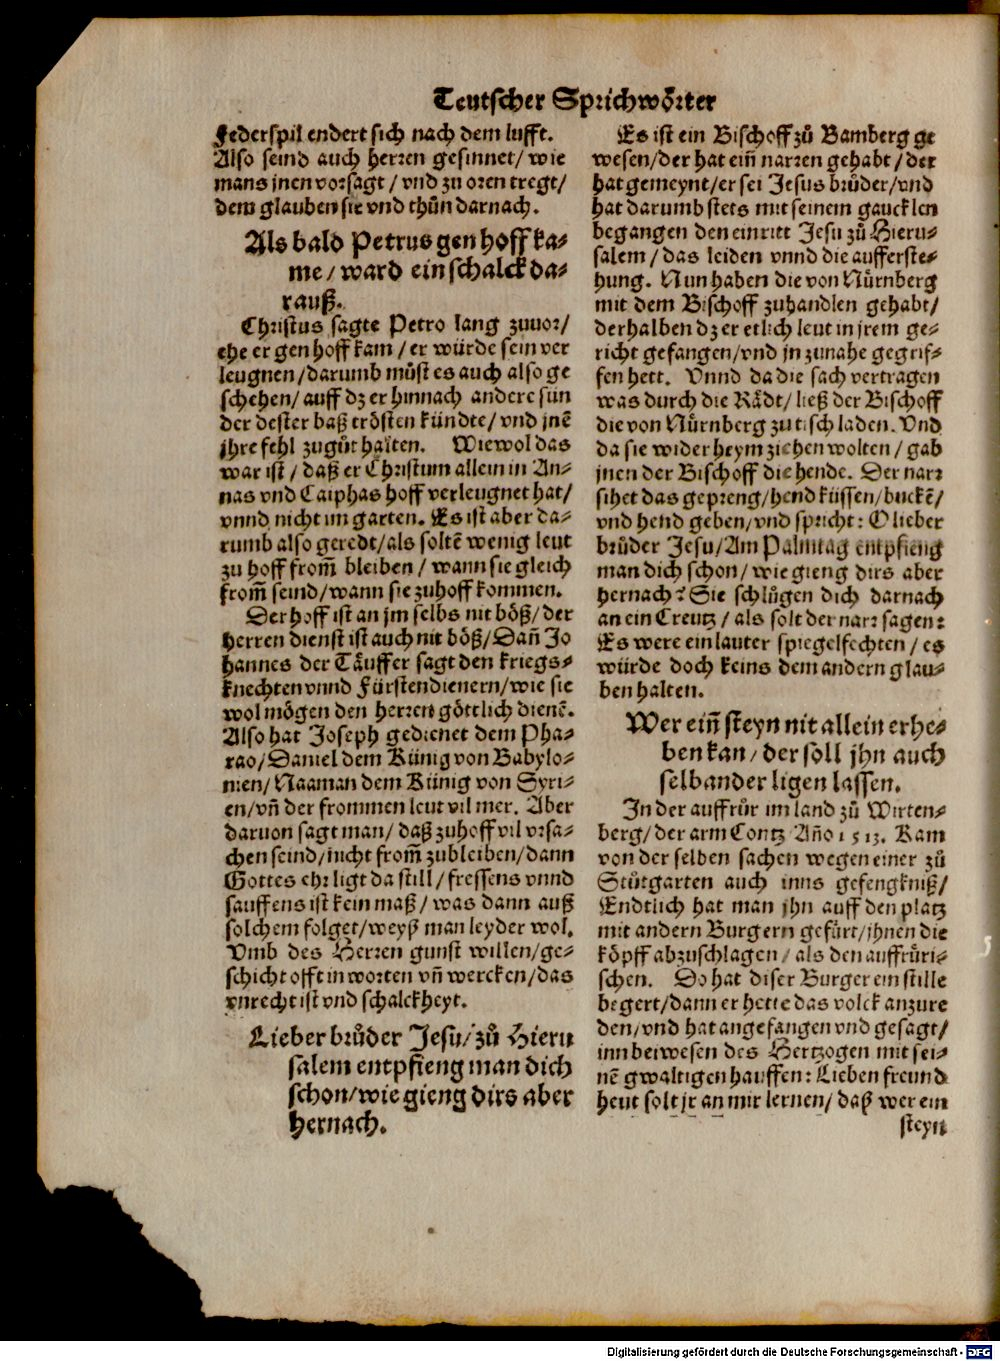 Teutscher Sprichwörter
Federspil endert sich nach dem lufft.
Also seind auch herren gesinnet/ wie
mans jnen vorsagt / vnd zu oren tregt/
dem glauben sie vnd thůn darnach.
Als bald Petrus gen hoff ka⸗
me / ward ein schalck da⸗
rauß.
Christus sagte Petro lang zuuor/
ehe er gen hoff kam / er würde sein ver
leugnen / darumb můst es auch also ge
schehen / auff dz er hinnach andere sün
der dester baß trösten kündte / vnd jnẽ
jhre fehl zugůt halten. Wiewol das
war ist / daß er Christum allein in An⸗
nas vnd Caiphas hoff verleugnet hat/
vnnd nicht im garten. Es ist aber da⸗
rumb also geredt/als soltẽ wenig leut
zu hoff from̃ bleiben / wann sie gleich
from̃ seind/wann sie zuhoff kommen.
Der hoff ist an jm selbs nit böß/ der
herren dienst ist auch nit böß/ Dañ Jo
hannes der Täuffer sagt den kriegs⸗
knechten vnnd Fürstendienern/wie sie
wol mögen den herren göttlich dienẽ.
Also hat Joseph gedienet dem Pha⸗
rao/ Daniel dem Künig von Babylo⸗
nien/ Naaman dem Künig von Syri⸗
en/ vñ der frommen leut vil mer. Aber
daruon sagt man/ daß zuhoff vil vrsa⸗
chen seind/nicht from̃ zubleiben/dann
Gottes ehr ligt da still / fressens vnnd
sauffens ist kein maß / was dann auß
solchem folget/weyß man leyder wol.
Vmb des Herren gunst willen/ge⸗
schicht offt in worten vñ wercken/das
vnrecht ist vnd schalckheyt.
Lieber brůder Jesu/ zů Hieru
salem entpfieng man dich
schon/wie gieng dirs aber
hernach.
Es ist ein Bischoff zů Bamberg ge
wesen/der hat eiñ narren gehabt / der
hat gemeynt/er sei Jesus brůder/vnd
hat darumb stets mit seinem gaucklen
begangen den einritt Jesu zů Hieru⸗
salem / das leiden vnnd die aufferste⸗
hung. Nun haben die von Nürnberg
mit dem Bischoff zuhandlen gehabt/
derhalben dz er etlich leut in jrem ge⸗
richt gefangen/vnd jn zunahe gegrif⸗
fen hett. Vnnd da die sach vertragen
was durch die Rädt/ ließ der Bischoff
die von Nürnberg zu tisch laden. Vnd
da sie wider heym ziehen wolten / gab
jnen der Bischoff die hende. Der narr
sihet das gepreng/hend küssen/buckẽ/
vnd hend geben/vnd spricht: O lieber
brůder Jesu/ Am Palmtag entpfieng
man dich schon/ wie gieng dirs aber
hernach? Sie schlůgen dich darnach
an ein Creutz / als solt der narr sagen:
Es were ein lauter spiegelfechten / es
würde doch keins dem andern glau⸗
ben halten.
Wer eiñ steyn nit allein erhe⸗
ben kan/ der soll jhn auch
selbander ligen lassen.
In der auffrůr im land zů Wirten⸗
berg/ der arm Contz Año 1513. Kam
von der selben sachen wegen einer zů
Stůtgarten auch inns gefengkniß/
Endtlich hat man jhn auff den platz
mit andern Burgern gefürt/jhnen die
köpff abzuschlagen / als den auffrüri⸗
schen. Do hat diser Burger ein stille
begert/dann er hette das volck anzure
den/vnd hat angefangen vnd gesagt/
inn beiwesen des Hertzogen mit sei⸗
nẽ gwaltigen hauffen: Lieben freund
heut solt jr an mir lernen/ daß wer ein
steyn
Digitalisierung gefördert durch die Deutsche Forschungsgemeinschaft - DFG